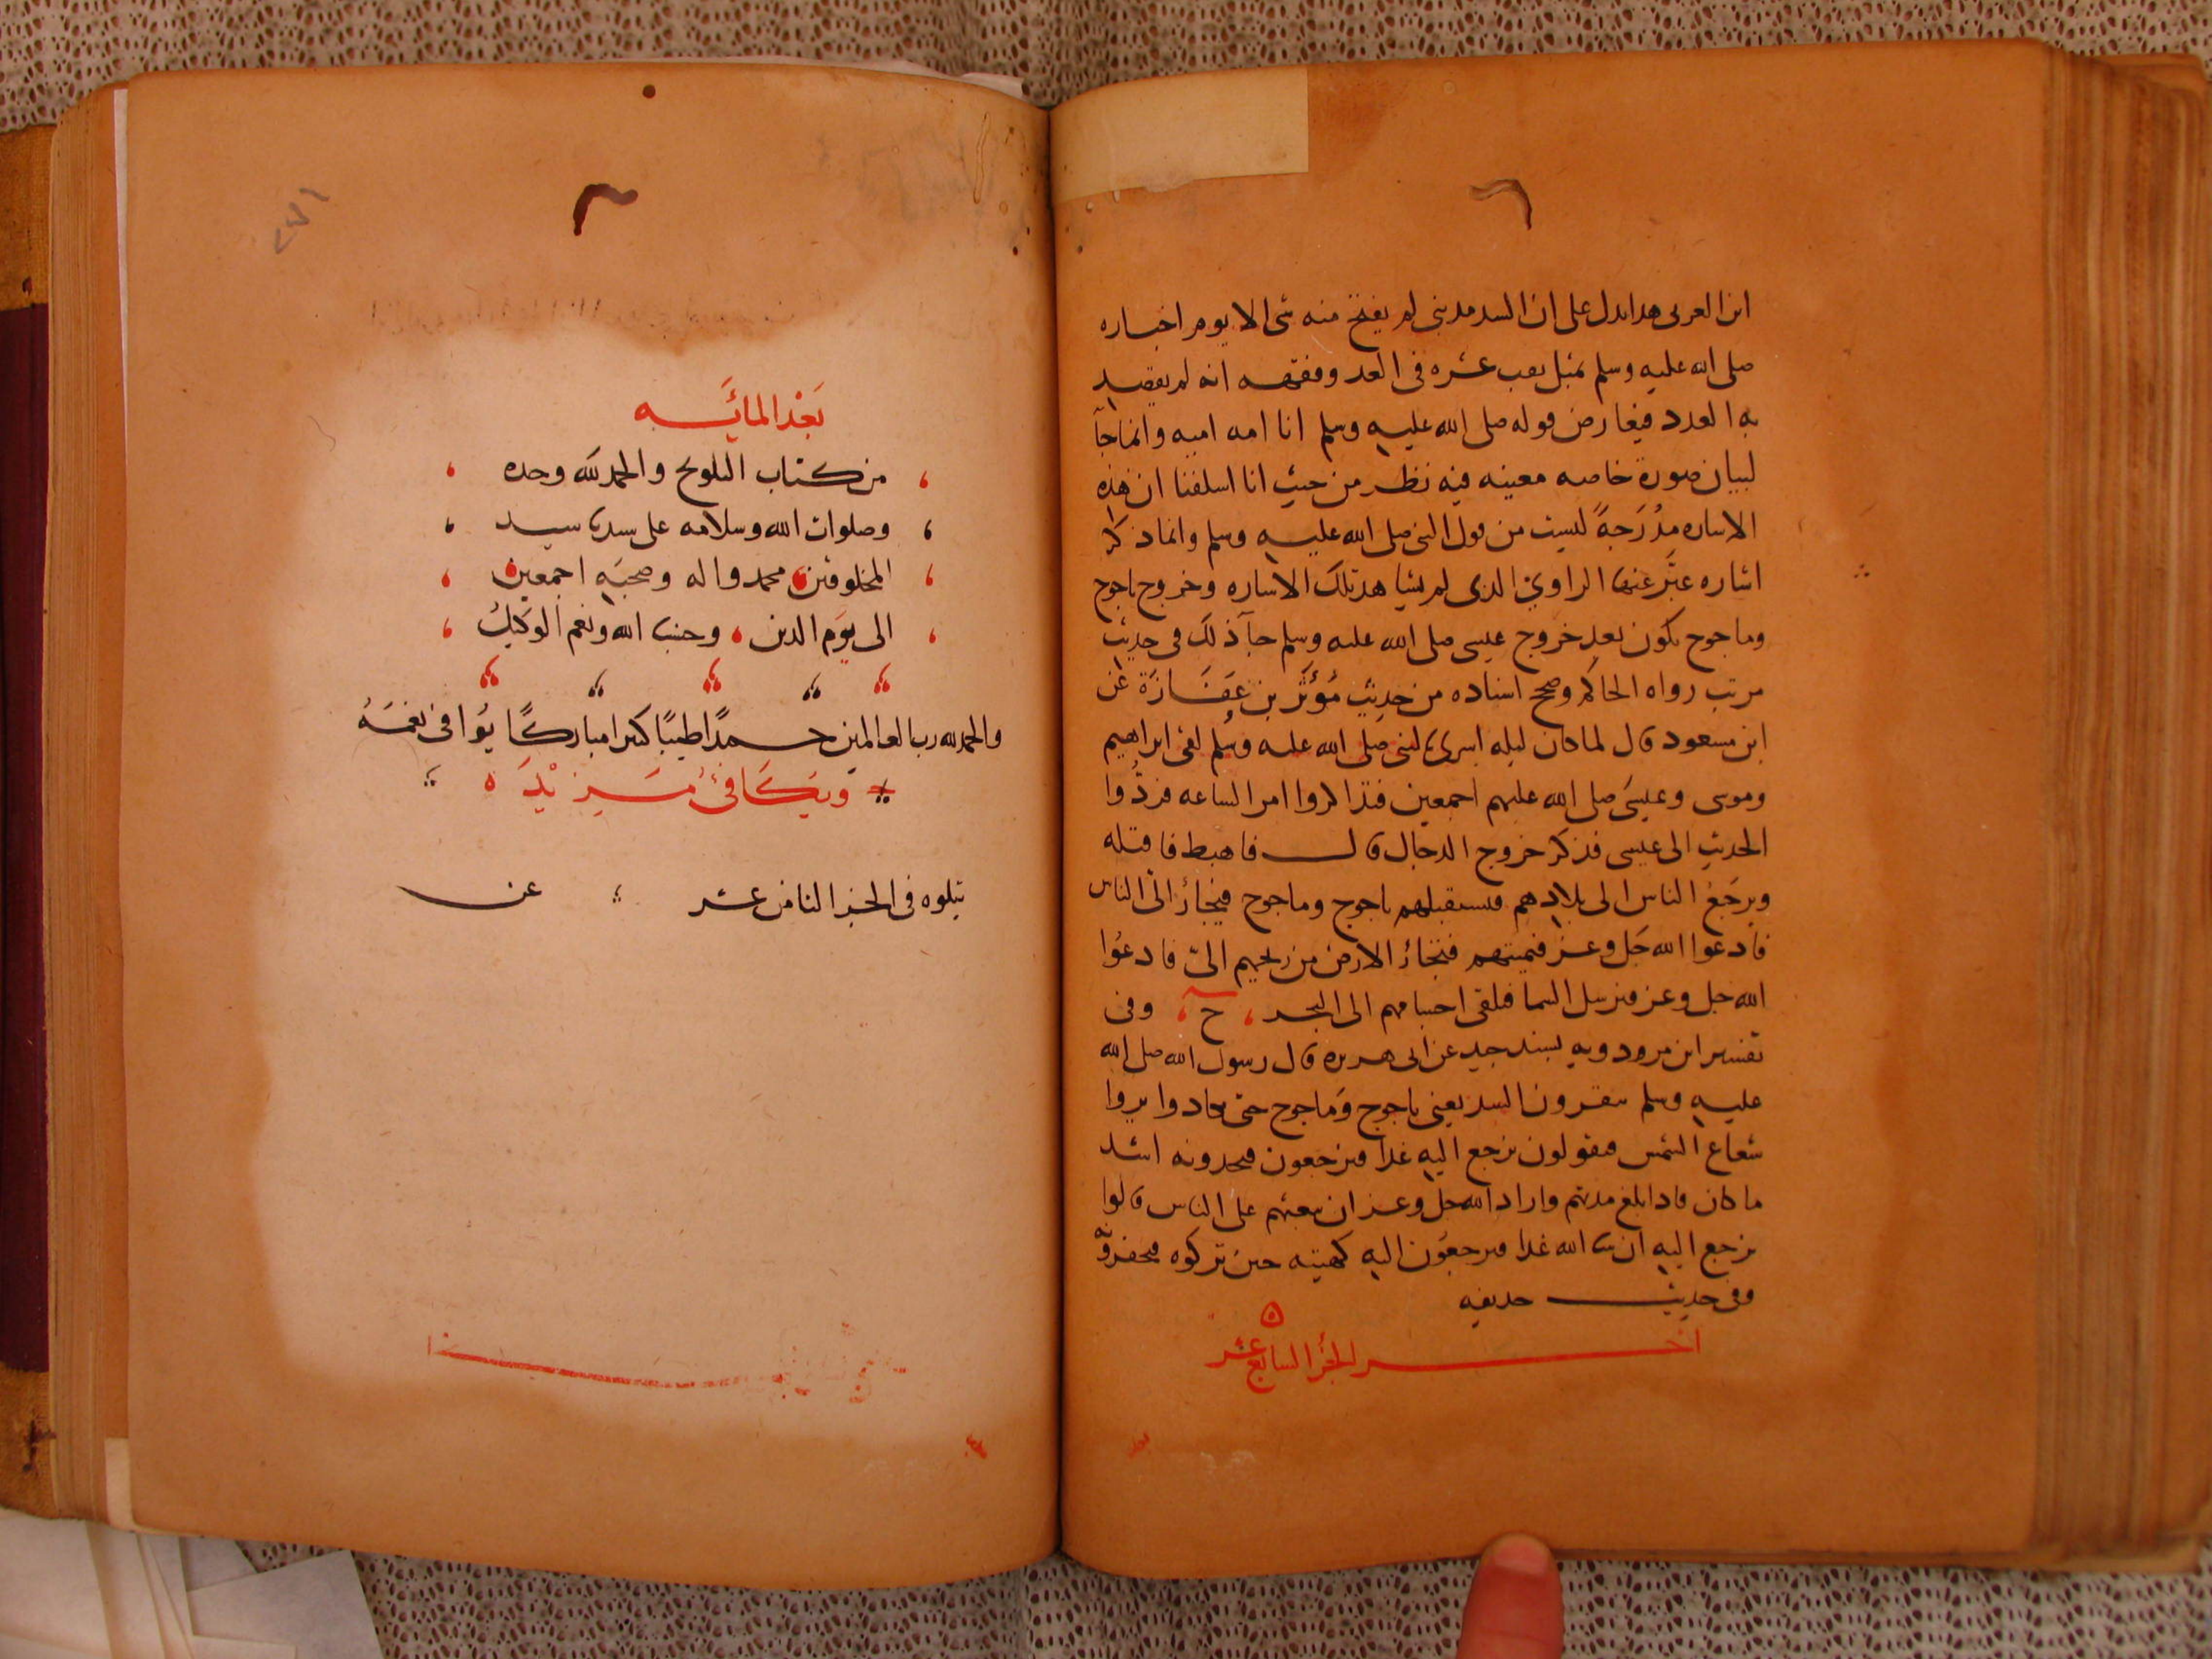 ابن العربى هدا يدل على ان السد مد بنى لم يفتح منه شى الا يوم اخباره
صلى الله عليه وسلم عشره فى العد وفقهه انه لم يقصد
به العدد فيعارض قوله صلى الله عليه وسلم انا امه اميه وانما جآ
لبيان صورة خاصه معينه فيه نظر من حيث انا اسلفنا ان هذه
الاساره مدُرَجةً ليست من قول النبى صلى الله عليه وسلم وانما ذكر
اشاره عبَّر عنها الراوي الدى لم يشاهد تلك الاساره وخروج ياجوج
وماجوج يكون بعد خروج عيسى صلى الله عليه وسلم جآ ذلك فى حديث
مرتب رواه الحاكم وصحح اسناده من حديث مُؤثَّر بن عفَازَة عن
ابن مسعود قال لما كان ليله اسرى بالنبى صلى الله عليه وسلم لقى ابراهيم
وموسى وعيسَى صلى الله عليهم اجمعين فتذاكروا امر الساعه فردُّوا
الحديث الى عيسى فذكر خروج الدجال قال فاهبط فاقتله
ويرجَع الناس الى بلادهم فيستقبلهم ياجوج وماجوج فيجأر الىّ الناس
فادعوا الله جَل وعز فيميتهم فتجأر الارض من ريحهم الىّ فادعُوا
الله جل وعز فيرسل السما فيلقى اجسامهم الى البحر ، ح ، وفى
تفسير ابن مردويه بسند جيد عن ابى هريره قال رسول الله صلى الله
عليه وسلم ينقرون السد يعنى ياجوج وَماجوج حتى يكادوا يروا
شعاع الشمس فيقولون نرجع اليه غدا فيرجعون فيجدونه اشد
ما كان فاذا بلغ مدتهم واراد الله جل وعز ان يبعثهم على الناس قالوا
نرجع اليه ان شا الله غدا فيرجعون اليه كهيته حين تركوه فيحفرونه
وفى حديث حديفه
اخر الجزُ السابع عشر
بَعْد المايَه
من كتاب التلويح والحمد لله وحده
وصلوات الله وسلامه على سيدنا سيد
المخلوقين محمد واله وصحبَه اجمعين
الى يوَم الدين ، وحسبنا الله ونعم الوَكيلُ
والحمد لله رب العالمين حمدًا طيبًا كثيرا مباركًا يُوافى نعمَهُ
ويَكَافئُ مَزيْدَه
يتلوه فى الجز الثامن عشر عن